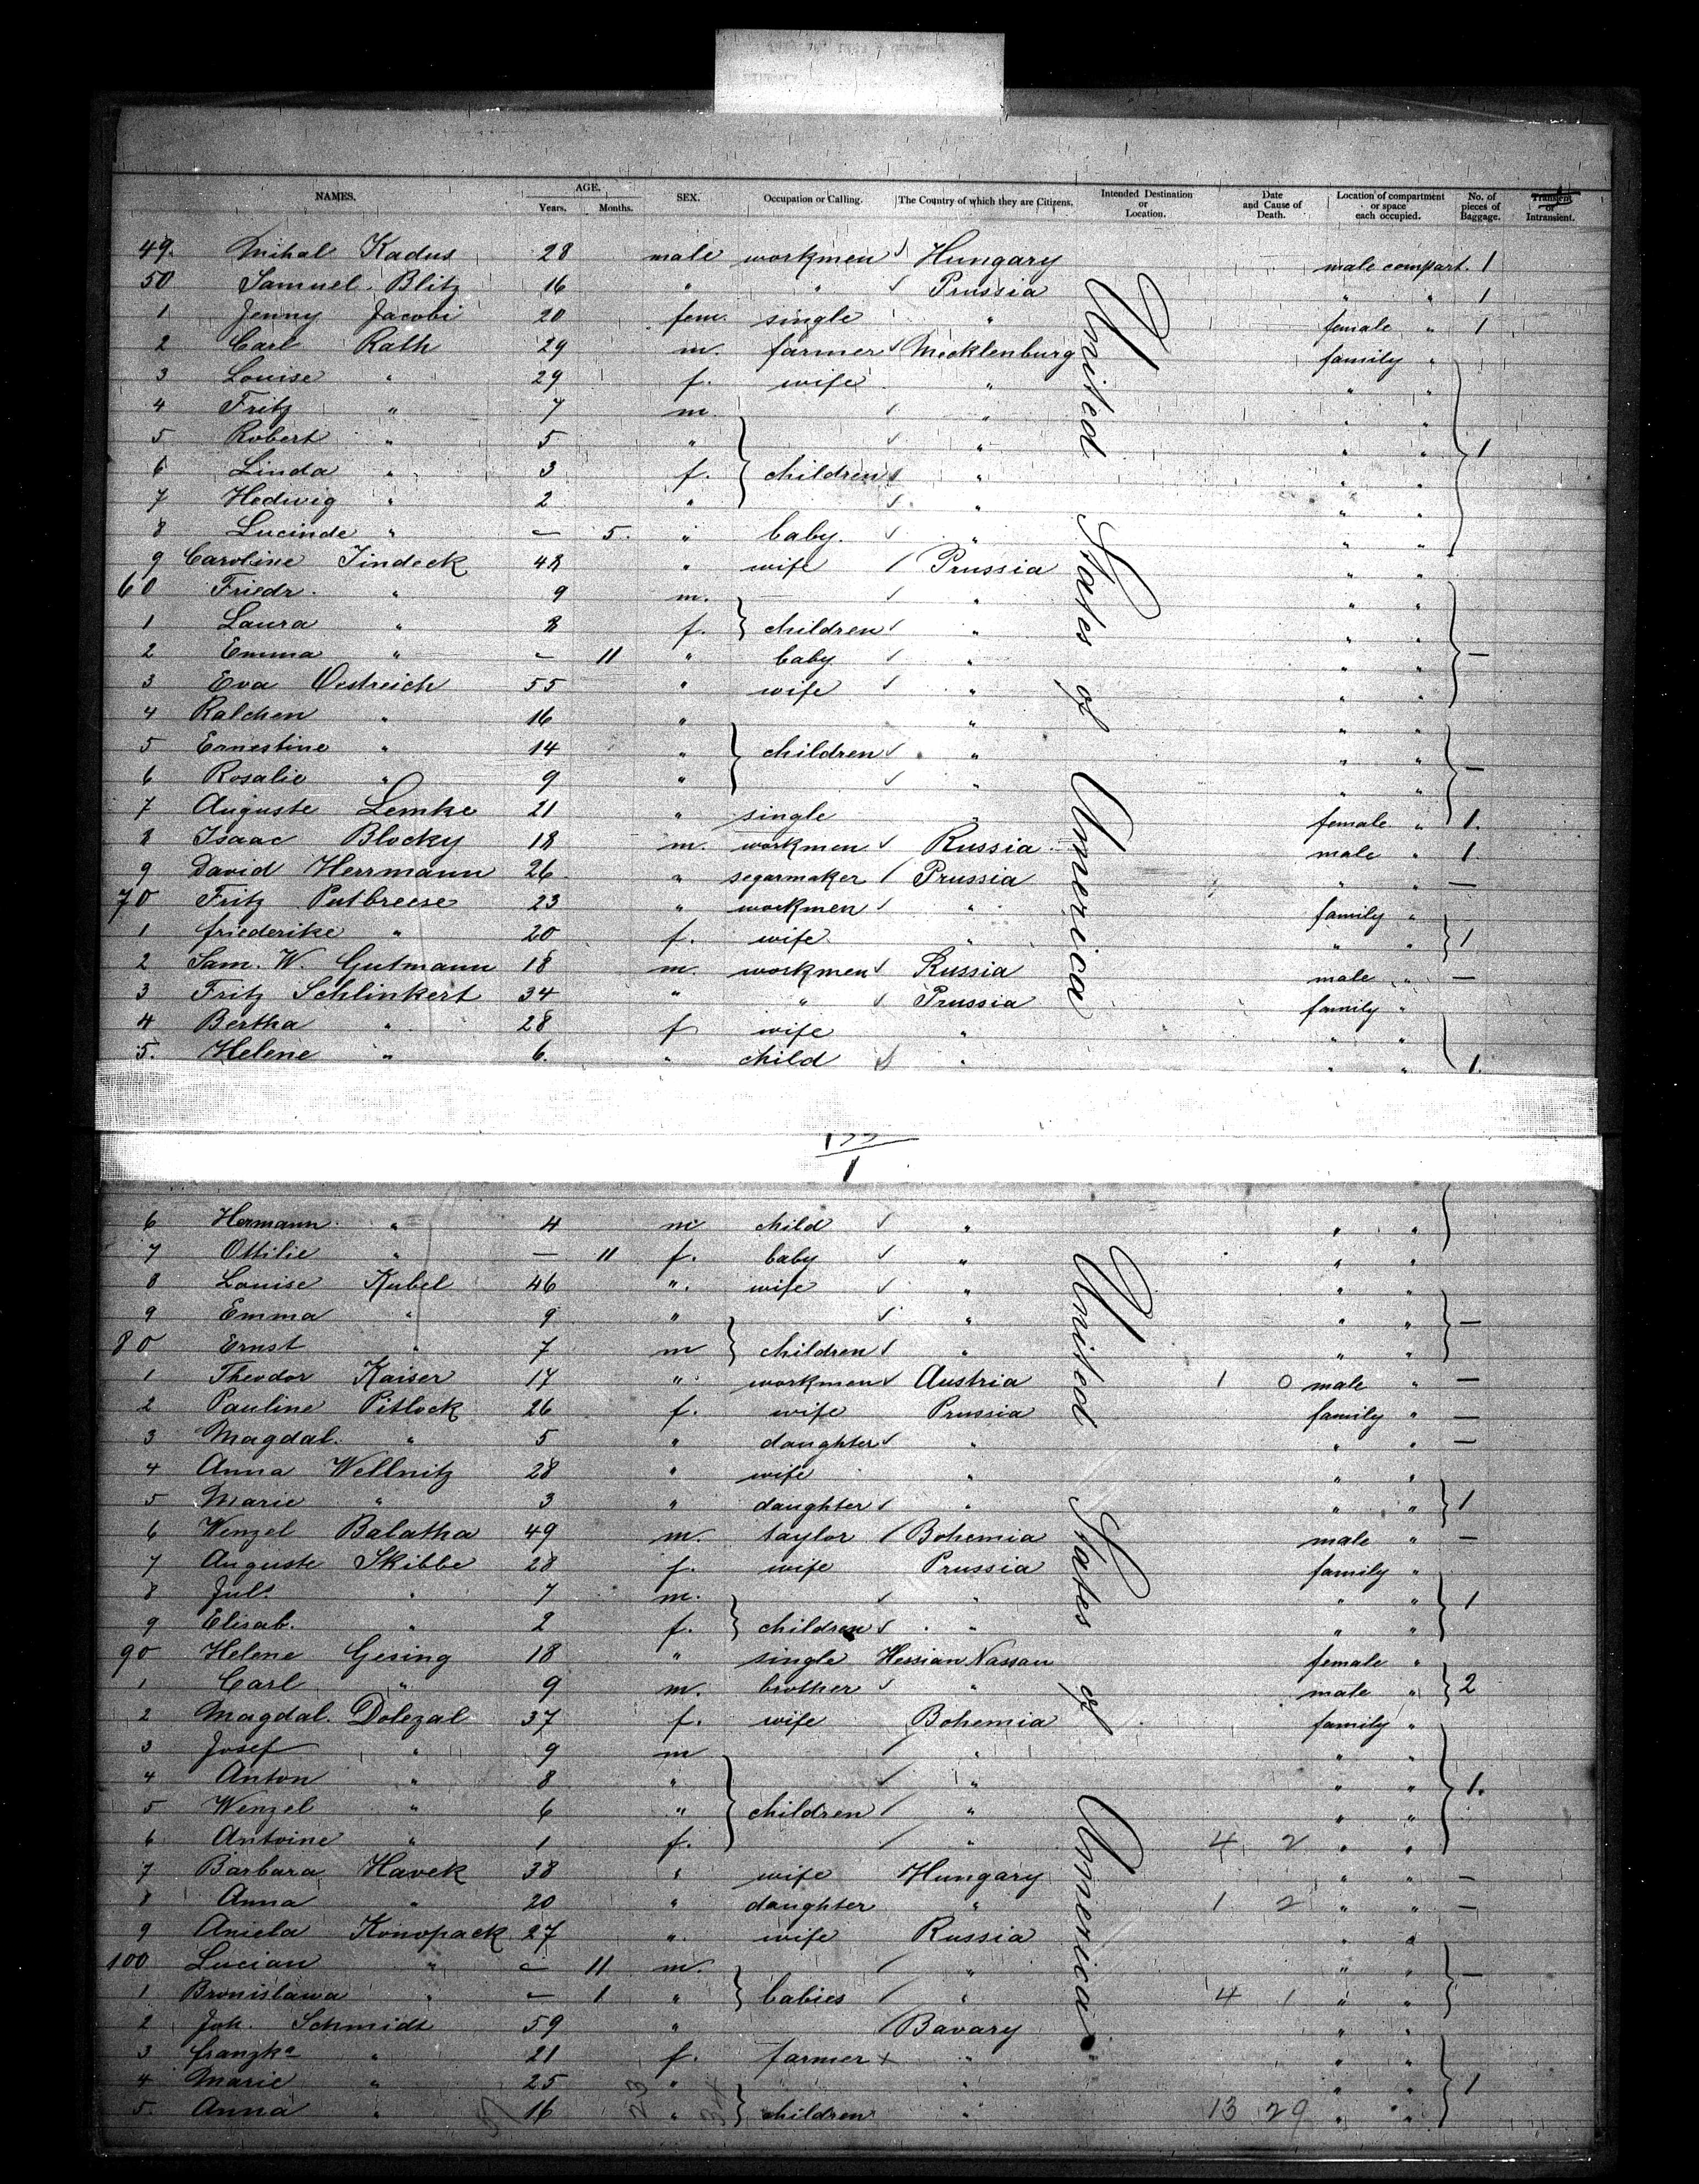 NAMES. AGE. Years. Months. SEX. Occupation or Calling. The Country of which they are Citizens. Intended Destination or Location. Date and Cause of Death. Location of compartment or space each occupied. No. of pieces of Baggage. Transient or Intransient.
49. Mihal Kadus 28 male workmen Hungary male compart. 1
50 Samuel Blitz 16 " " Prussia " " 1
1 Jenny Jacobi 20 fem. single " female " 1
2 Carl Rath 29 m. farmer Mecklenburg family "
3 Louise " 29 f. wife " " "
4 Fritz " 7 m " " "
5 Robert " 5 " " " " 1
6 Linda " 3 f. children " " "
7 Hedwig " 2 " " " "
8 Lucinde " — 5. " baby. " " "
9 Caroline Jindeck 48 " wife Prussia " "
60 Friedr. " 9 m. " " "
1 Laura " 8 f. children " " "
2 Emma " — 11 " baby " " " —
3 Eva Oestreich 55 " wife " " "
4 Ralchen " 16 " " " "
5 Ernestine " 14 " children " " "
6 Rosalie " 9 " " " " —
7 Auguste Lemke 21 " single " female " 1.
8 Isaac Blocky 18 m. workmen Russia male " 1.
9 David Herrmann 26 " segarmaker Prussia " " —
70 Fritz Putbreese 23 " workmen " family "
1 friederike " 20 f. wife " " " 1
2 Sam. W. Gutmann 18 m. workmen Russia male " —
3 Fritz Schlinkert 34 " " Prussia family "
4 Bertha " 28 f wife " " "
5. Helene " 6. " child " " " 1.
United States of America
1
6 Hermann " 4 m child " " "
7 Ottilie " — 11 f. baby " " "
8 Louise Kubel 46 " wife " " "
9 Emma " 9 " " " " —
80 Ernst " 7 m children " " "
1 Theodor Kaiser 17 " workmen Austria 1 0 male " —
2 Pauline Pitlock 26 f. wife Prussia family " —
3 Magdal. " 5 " daughter " " " —
4 Anna Wellnitz 28 " wife " " "
5 Marie " 3 " daughter " " " 1
6 Wenzel Balatha 49 m. taylor Bohemia male " —
7 Auguste Skibbe 28 f. wife Prussia family "
8 Juls " 7 m. " " " 1
9 Elisab. " 2 f. children " " "
90 Helene Gesing 18 " single Hessian Nassau female "
1 Carl " 9 m. brother " male " 2
2 Magdal. Dolezal 37 f. wife Bohemia family "
3 Josef " 9 m " " "
4 Anton " 8 " " " " 1.
5 Wenzel " 6 " children " " "
6 Antoine " 1 f. " 4 2 " "
7 Barbara Havek 38 " wife Hungary " " —
8 Anna " 20 " daughter " 1 2 " " —
9 Aniela Konopack 27 " wife Russia " "
100 Lucian " — 11 m. " " " —
1 Bronislawa " — 1 " babies " 4 1 " "
2 Joh. Schmidt 59 " Bavary " "
3 franzka " 21 f. farmer " " "
4 Marie " 25 " " " " 1
5. Anna " 16 " children " 13 29 " "
United States of America
23